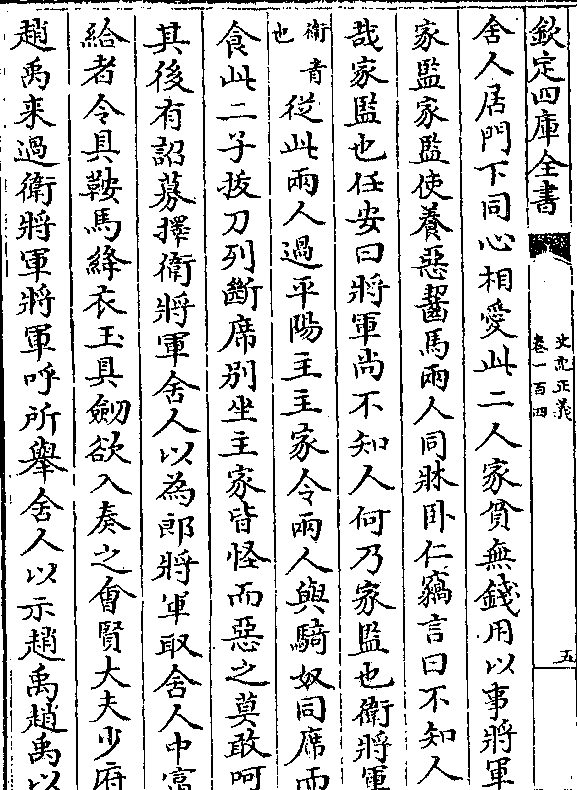 欽定四庫全書
史記正義
卷一百四
五
舍人居門下同心相愛此二人家貧無錢用以事將軍
家監家監使養惡齧馬兩人同牀卧仁竊言曰不知人
哉家監也任安曰將軍尚不知人何乃家監也衛將軍
衛青也
從此兩人過平陽主主家令兩人與騎奴同席而
食此二子抜刀列斷席別坐主家皆怪而惡之莫敢呵
其後有詔募擇衛將軍舍人以為郎將軍取舍人中富
給者令具鞍馬絳衣玉具劒欲入奏之㑹賢大夫少府
趙禹来過衛將軍將軍呼所舉舍人以示趙禹趙禹以